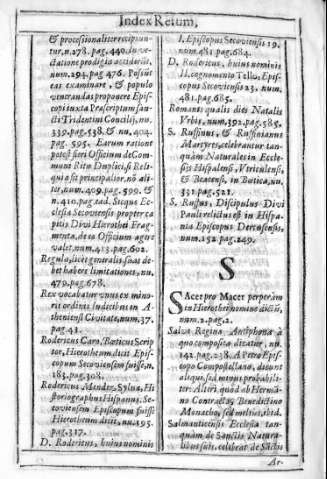 Index Rerum,
& processionaliter recipiuntur, n. 278. pag. 440. In vectatione prodigio acciderit,
num. 294. pag. 476. Possunt
eas examinare, & populo
venerandas proponere Episcopi
iuxta Præscriptum sancti
Tridentini Concilij, nu.
339. pag. 538. & nu, 404.
pag. 595. Earum ratione
potest fieri Officium de Communi
Ritu Duplici, si Reliquia
sit principalior, nõ aliter,
num. 409. pag. 599. &
n. 410. pag. ead. Sicque Ecclesia
Secoviensis propter capitis
Divi Hierothei Fragmenta,
de eo Officium agere
valet, num. 413. pag. 602.
Regula, licet generalis sit, debet
habere limitationes, nu,
479. pag. 678.
Rex vocabatur unus ex minoris
ordinis Iudicibus in Atheniensi
Civitate, num. 37.
pag. 41.
Rodericus Caro, Bæticus Scriptor,
Hierotheum dicit Episcopum
Secoviensem fuisse, n.
183. pag. 308.
Rodericus Mendez, Sylva, Historiographus
Hispanus. Secoviensem
Episcopum fuisse
Hierotheum dicit, nu. 195.
pag. 317.
D. Rodericus, huius nominis
I. Episcopus Secoviensis 19.
num. 481. pag. 684.
D. Rodericus, huius nominis
II. cognomento Tello, Episcopus
Secoviensis 23. num.
481. pag. 685.
Romani qualis dies Natalis
Vrbis, num. 392. pag. 585.
S. Ruffinus, & Ruffinianus
Martyres, celebrantur tanquam
Naturales in Ecclesia
Hispalensi, Vtriculensi,
& Beatensi, in Bætica, nu,
331. pag. 521.
S. Rufus, Discipulus Divi
Pauli relictus est in Hispania
Episcopus Dertusensis,
num. 152. pag. 249.
S
Sacer pro Macer perperàm
in Hierotheo nomine dicitur,
num. 2. pag. 2.
Salve Regina Antiphona à
quo composita dicatur, nu.
142. pag. 238. A Petro Episcopo
Compostellano, dicunt
aliqui, sed minus probabiliter.
Alteri, quod ab Hermanno
Contracto, Benedictino
Monacho, sed melius, ibid.
Salmanticensis Ecclesia tanquam
de Sanctis Naturalibus
suis, celebrat de Sactis
Ar-